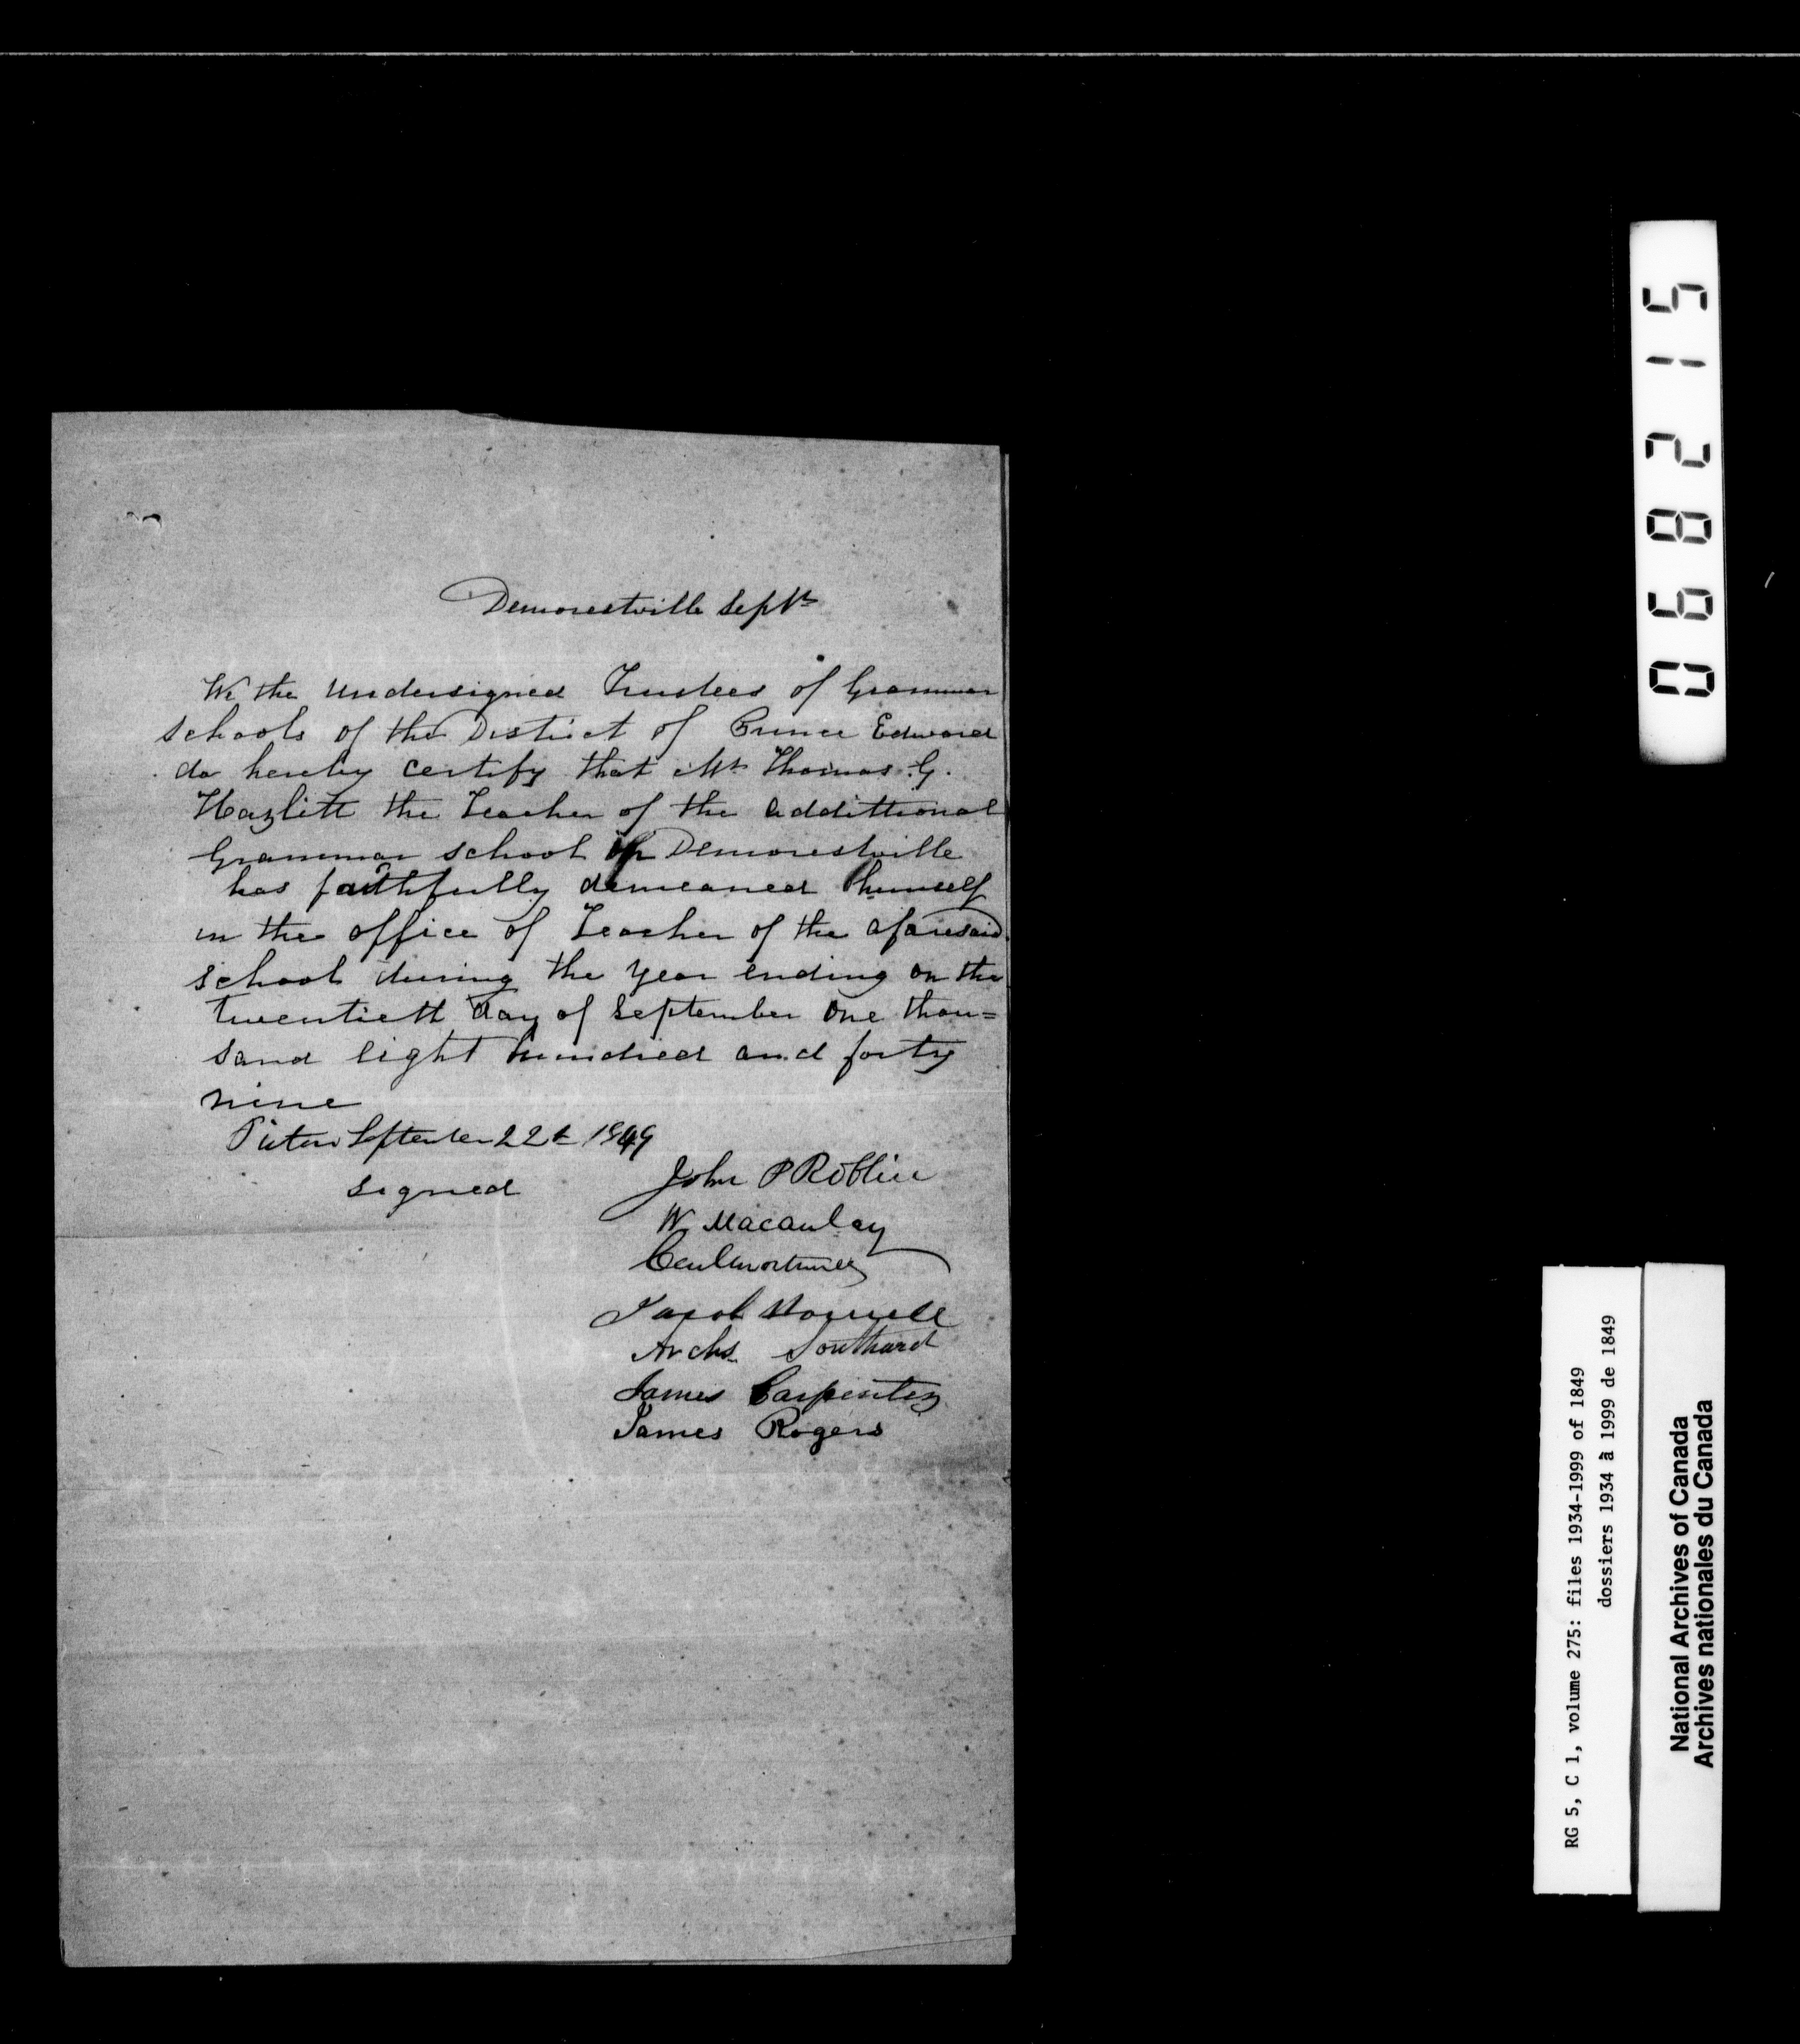 Demorestville Septr
We the Undersigned Trustees of Grammar
schools of the District of Prince Edward
do hereby certify that Mr Thomas G.
Hazlitt the Teacher of the additional
Grammar school in Demorestville
has faithfully demeaned himself
in the office of Teacher of the aforesaid
school during the Year ending on the
twentieth day of September One thou=
sand eight hundred and forty
nine
Picton September 22d 1849
signed
John P Roblin
W. Macaulay
Jacob Howell
Archs. Southard
James Carpenter
James Rogers
068215
RG 5, C 1, volume 275: files 1934-1999 of 1849
dossiers 1934 à 1999 de 1849
National Archives of Canada
Archives nationales du Canada